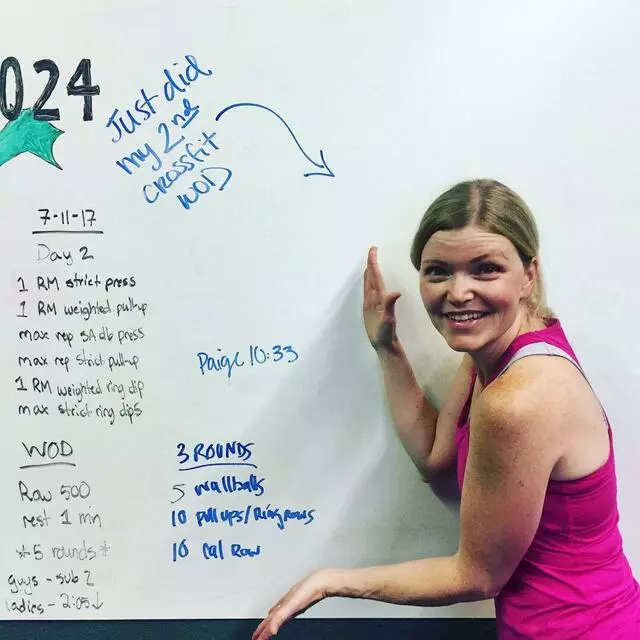 024
Just did
my 2nd
crossfit
WOD
7-11-17
Day 2
1 RM strict press
1 RM weighted pullup
max rep SA db press
max rep strict pull-up
1 RM weighted ring dip
max strict ring dips
Paige 10:33
WOD
Row 500
rest 1 min
*5 rounds*
guys - sub 2
ladies - 2:05↓
3 ROUNDS
5 wallballs
10 pullups/Ringrows
10 Cal Row